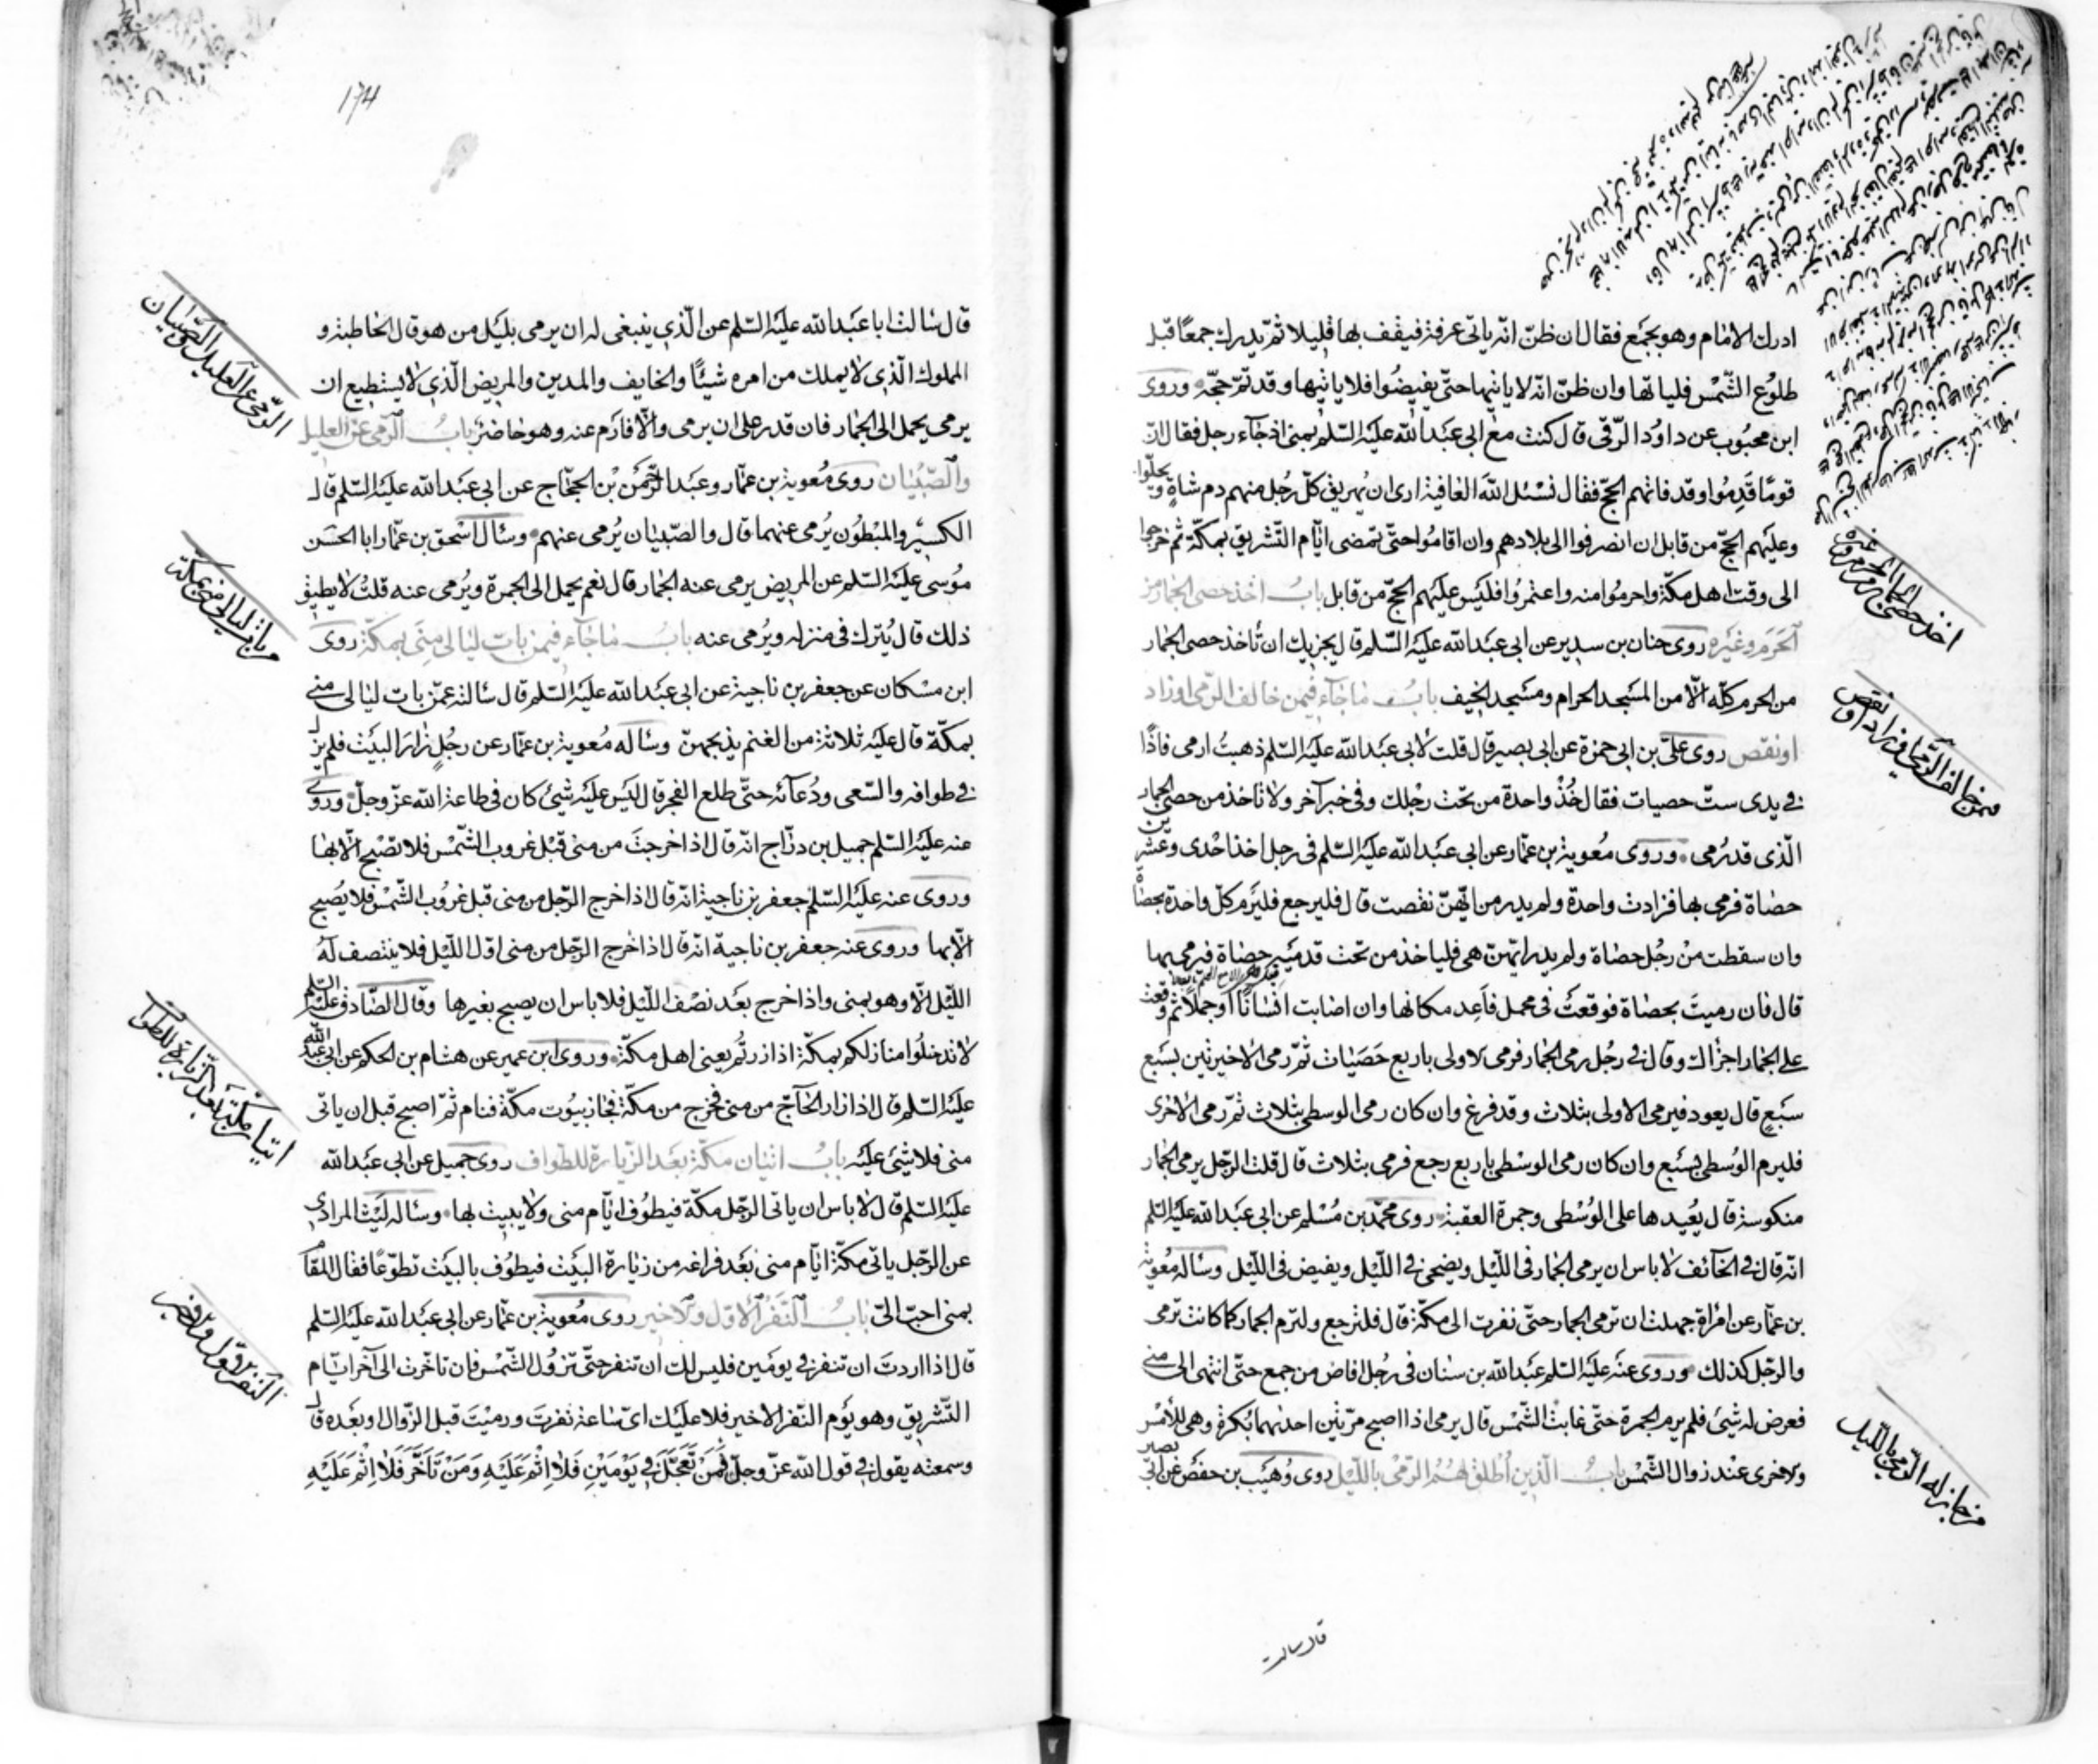 ادرك الامام وهو بجمع فقال ان ظنّ انّه ياتى عرفة فيقف بها قليلا ثمّ يدرك جمعًا قبل
طلوع الشّمس فلياتها وان ظنّ انّه لا ياتيها حتّى يفيضُوا فلا ياتيها وقد تمّ حجّه وروى
ابن محبُوب عن داوُد الرّقى قال كنت مع ابى عبد الله عليه السّلم بمنى اذ جآء رجل فقال انّ
قومًا قدِمُوا وقد فاتهم الحجّ فقال نسئل الله العافية ارى ان يُهريق كلّ رجُل منهم دم شاةٍ ويحلّوا
وعليهم الحجّ من قابل ان انصرفوا الى بلادهم وان اقامُوا حتّى تمضى ايّام التّشريق بمكّة ثم خرجوا
الى وقت اهل مكّة واحرمُوا منه واعتمرُوا فليس عليهم الحجّ من قابل بابُ اخذ حصى الجمار من
الحرم وغيره روى حنان بن سدير عن ابى عبد الله عليه السّلم قال يجزيك ان تأخذ حصى الجمار
من الحرم كلّه الّا من المسجد الحرام ومسجد الخيف بابُ ما جآء فيمن خالف الرّمى او زاد
او نقص روى علىّ بن ابى حمزة عن ابى بصير قال قلت لابى عبد الله عليه السّلم ذهبتُ ارمى فاذًا
فى يدى ستّ حصيات فقال خُذْ واحدة من تحت رجْلك وفى خبر آخر ولا تاخذ من حصى الجمار
الّذى قد رُمى وروى مُعوية بن عمّار عن ابى عبد الله عليه السّلم فى رجل اخذ احْدى وعشرين
حصاة فرمى بها فزادت واحدة ولم يدر من ايّهنّ نقصت قال فليرجع فليرم كلّ واحدة بحصاة
وان سقطت منْ رجُل حصاة ولم يدر ايّتهنّ هى فلياخذ من تحت قدميْه حصاة فيرمى بها
قال فان رميتَ بحصاة فوقعتْ فى محمل فاَعِد مكانها وان اصابت انسانًا او جملًا ثم وقعت
على الجمار اجزأك وقال فى رجُل رمى الجمار فرمى الاولى باربع حَصَيَات ثمّ رمى الاخيرتين بسَبع
سَبعٍ قال يعود فيرمى الاولى بثلاث وقد فرغ وان كان رمى الوسطى بثلاث ثمّ رمى الاخرى
فليرم الوُسطى بسَبع وان كان رمى الوسْطى باربع رجع فرمى بثلاث قال قلت الرّجل يرمى الجمار
منكوسة قال يُعيدها على الوُسْطى وجمرة العقبة روى محمّد بن مُسْلم عن ابى عبد الله عليه السّلم
انّه قال فى الخآئف لا باس ان يرمى الجمار فى اللّيل ويضحى فى اللّيل ويفيض فى اللّيل وسأله مُعوية
بن عمّار عن امْراة جهلت ان ترمى الجمار حتّى نفرت الى مكّة قال فلترجع ولترم الجمار كما كانت ترمى
والرّجل كذلك وروى عنه عليه السّلم عبد الله بن سنان فى رجُل افاض من جمع حتّى انتهى الى منى
فعرض له شئ فلم يرم الجمرة حتّى غابت الشّمس قال يرمى اذا اصبح مرّتين احدٰيهما بُكرة وهى للأمْس
والاخرى عند زوال الشّمس بابُ الّذين اُطلق لهُمُ الرّمْى باللّيل روى وُهَيب بن حفص عن ابى بصير
قال سالت
اخذ حصى الجمار من الحرم وغيره
فيمن خالف الرّمى او زاد او نقص
من جاز له الرّمى باللّيل
174
قال سالت ابا عبد الله عليه السّلم عن الّذى ينبغى له ان يرمى بليل من هو قال الخاطبة و
المملوك الّذى لا يملك من امره شيئًا والخايف والمدين والمريض الّذى لا يستطيع ان
يرمى يحمل الى الجمار فان قدر على ان يرمى والّا فارم عنه وهو حاضر بابُ الرّمى عن العليل
والصّبْيان روى مُعوية بن عمّار وعبد الرّحمٰن بْن الحجّاج عن ابى عبد الله عليه السّلم قال
الكسيْر والمبْطُون يُرمى عنهما قال والصّبيان يُرمى عنهم وسأل اسْحق بن عمّار ابا الحسَن
مُوسى عليه السّلم عن المريض يرمى عنه الجمار قال نعم يحمل الى الجمرة ويُرمى عنه قلتُ لا يطيق
ذلك قال يُترك فى منزله ويُرمى عنه بابُ ما جآء فيمن بات ليالى مِنَى بمكّة روى
ابن مسْكان عن جعفر بن ناجية عن ابى عبد الله عليه السّلم قال سالته عمّن بات ليالى منى
بمكّة قال عليه ثلاثة من الغنم يذبحهنّ وساله مُعوية بن عمّار عن رجُلٍ زارَ البيت فلم يزل
فى طوافه والسّعى ودُعآئه حتّى طلع الفجر قال ليس عليه شئ كان فى طاعة الله عزّ وجلّ وروى
عنه عليه السّلم جميل بن درّاج انّه قال اذا خرجتَ من منى قبْل غروب الشّمس فلا تصْبح الّا بها
وروى عنه عليه السّلم جعفر بن ناجية انّه قال اذا خرج الرّجل من منى قبل غرُوب الشّمس فلا يُصبح
الّا بها وروى عنه جعفر بن ناجية انّه قال اذا خرج الرّجل من منى اوّل اللّيل فلا ينتصف لهُ
اللّيل الّا وهو بمنى واذا خرج بعد نصْف اللّيل فلا باس ان يصبح بغيرها وقال الصّادق عليه السّلم
لا تدخلُوا منازلكم بمكّة اذا زرتُم يعنى اهل مكّة وروى ابن عمير عن هشام بن الحكم عن ابى عبد الله
عليه السّلم قال اذا زار الحآجّ من منى فخرج من مكّة فجاز بيُوت مكّة فنام ثمّ اصبح قبل ان ياتى
منى فلا شئ عليه بابُ اتيان مكّة بعد الزّيارة للطواف روى جميل عن ابى عبد الله
عليه السّلم قال لا باس ان ياتى الرّجل مكّة فيطوُف ايّام منى ولا يبيت بها وساله ليْث المرادى
عن الرّجل ياتى مكّة ايّام منى بعد فراغه من زيارة البيْت فيطوُف بالبيْت تطوّعًا فقال المقام
بمنى احبّ الىّ بابُ النّفر الاوّل والاخير روى مُعوية بن عمّار عن ابى عبد الله عليه السّلم
قال اذا اردتَ ان تنفر فى يومين فليس لك ان تنفر حتّى تزوُل الشّمس فان تاخّرت الى آخر ايّام
التّشريق وهو يوم النّفر الاخير فلا عليك اىّ ساعة نفرتَ ورميْتَ قبل الزّوال او بعده قال
وسمعته يقول فى قول الله عزّ وجلّ فَمَنْ تَعَجَّلَ فِى يَوْمَيْنِ فَلَا اِثْمَ عَلَيْهِ وَمَنْ تَاَخَّرَ فَلَا اِثْمَ عَلَيْهِ
الرّمى عن العليل والصّبيان
من بات ليالى منى بمكّة
اتيان مكّة بعد الزّيارة للطواف
النّفر الاوّل والاخير